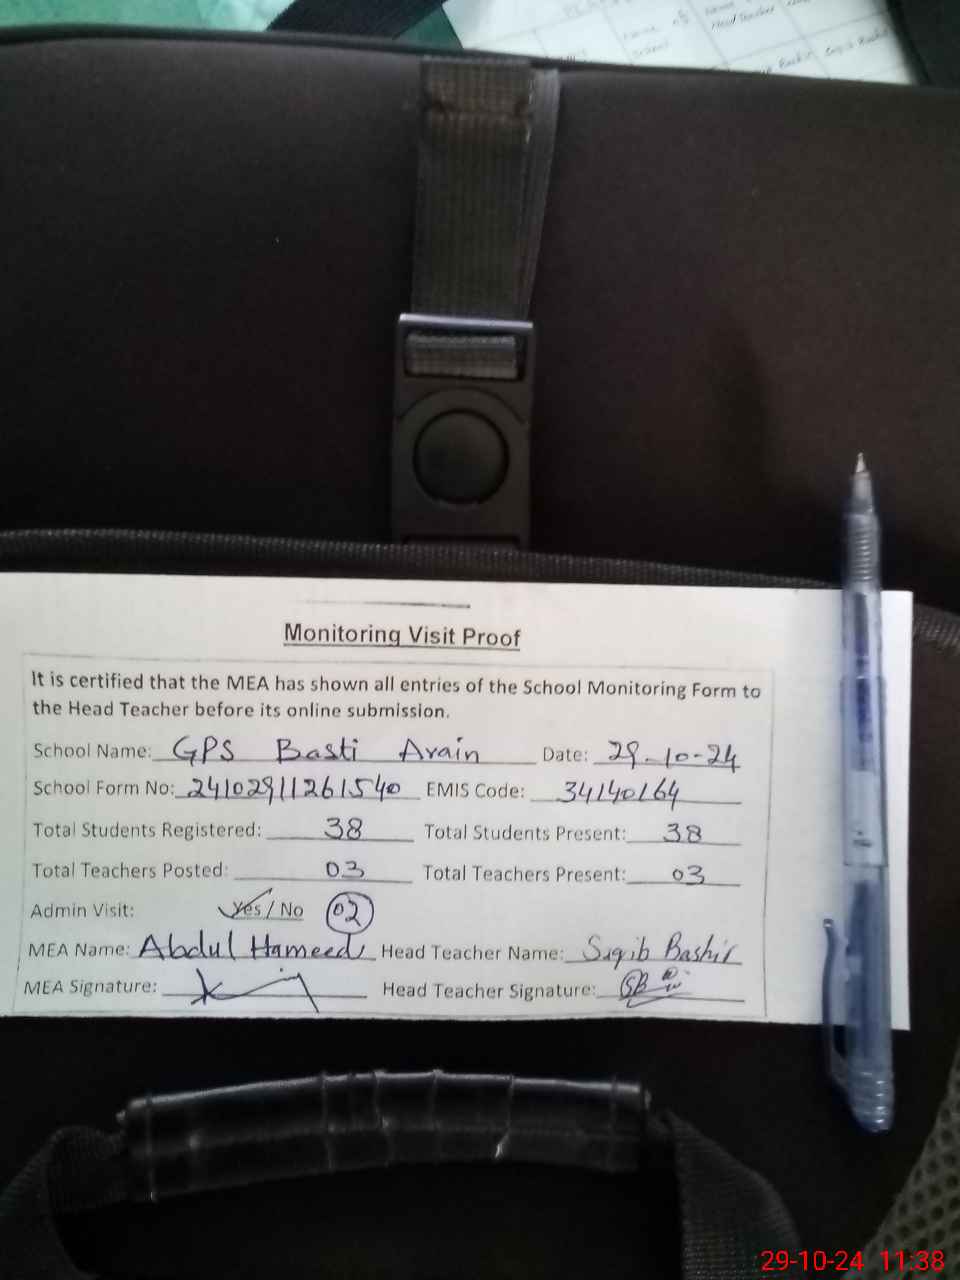 Head Teacher
Monitoring Visit Proof
It is certified that the MEA has shown all entries of the School Monitoring Form to
the Head Teacher before its online submission.
School Name: GPS Basti Arain Date: 29-10-24
School Form No: 24102911261540 EMIS Code: 34140164
Total Students Registered: 38 Total Students Present: 38
Total Teachers Posted: 03 Total Teachers Present: 03
Admin Visit: Yes / No 02
MEA Name: Abdul Hameed Head Teacher Name: Saqib Bashir
MEA Signature: Head Teacher Signature: SB
29-10-24 11:38